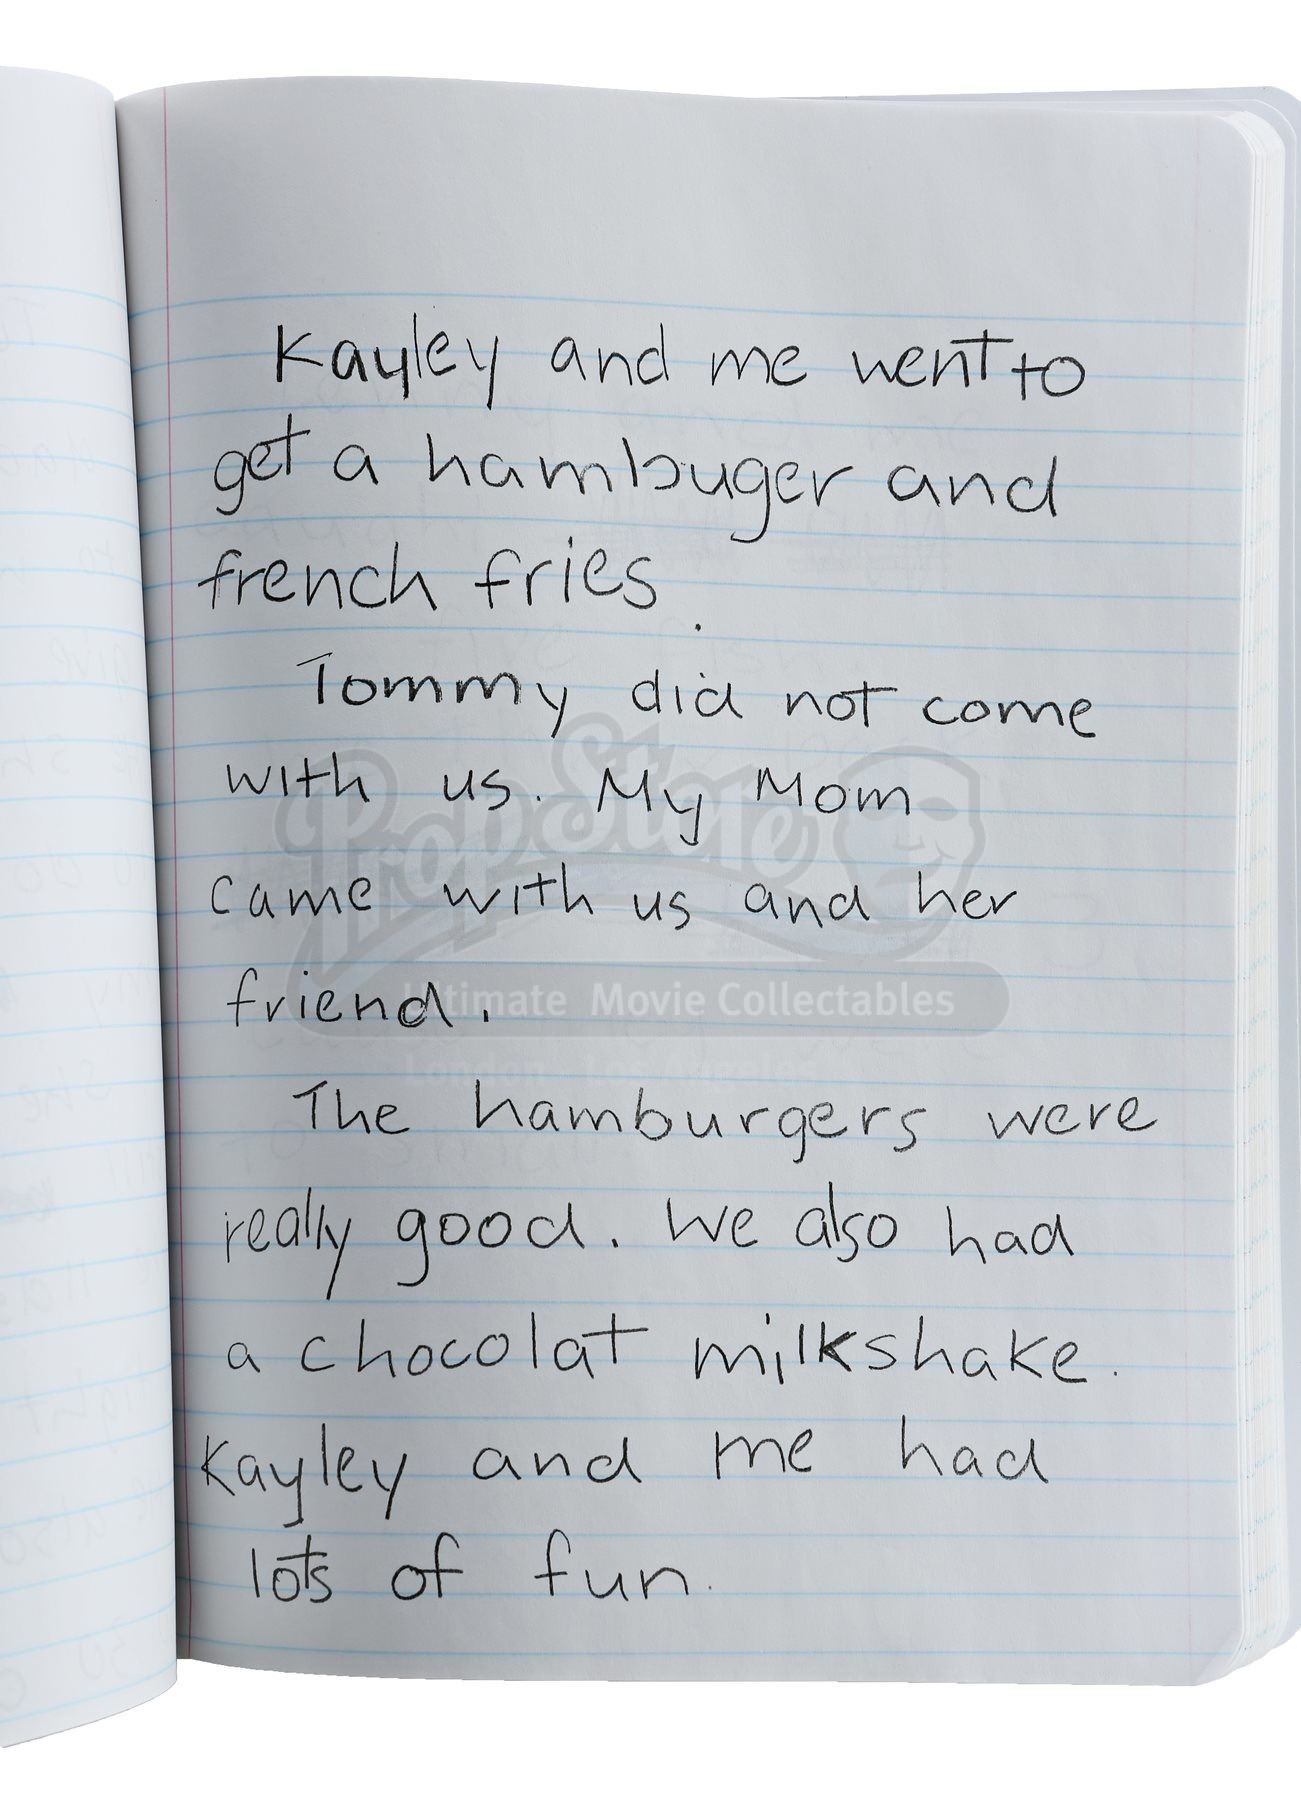 Kayley and me went to
get a hambuger and
french fries.
Tommy did not come
with us. My Mom
came with us and her
friend.
The hamburgers were
really good. We also had
a chocolat milkshake.
Kayley and me had
lots of fun.
Prop Store
Ultimate Movie Collectables
London - Los Angeles